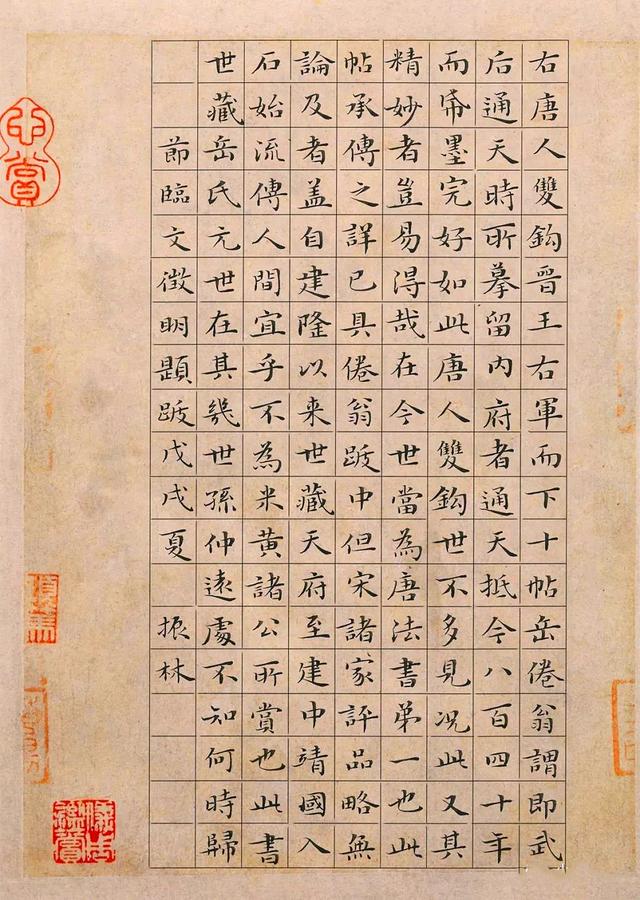 右唐人雙鈎晉王右軍而下十帖岳倦翁謂即武
后通天時所摹留内府者通天抵今八百四十年
而帋墨完好如此唐人雙鈎世不多見况此又其
精妙者豈易得哉在今世當為唐法書弟一也此
帖承傳之詳已具倦翁跋中但宋諸家評品略無
論及者盖自建隆以来世藏天府至建中靖國入
石始流傳人間宜乎不為米黄諸公所賞也此書
世藏岳氏元世在其幾世孫仲遠處不知何時歸
節臨文徴明題跋戊戌夏 振林